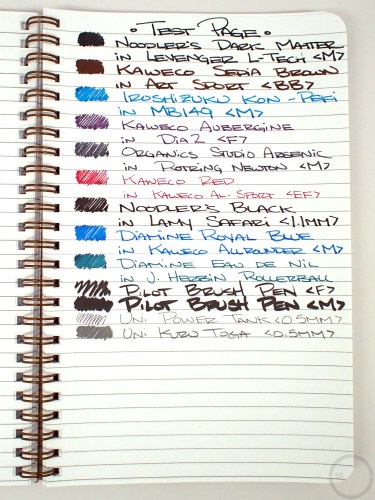 · Test Page ·
Noodler's Dark Matter
in Levenger L-Tech <M>
Kaweco Sepia Brown
in Art Sport <BB>
Iroshizuku Kon-Peki
in MB149 <M>
Kaweco Aubergine
in Dia2 <F>
Organics Studio Arsenic
in Rotring Newton <M>
Kaweco Red
in Kaweco AL-Sport <EF>
Noodler's Black
in Lamy Safari <1.1mm>
Diamine Royal Blue
in Kaweco Allrounder <M>
Diamine Eau de Nil
in J. Herbin Rollerball
Pilot Brush Pen <F>
Pilot Brush Pen <M>
Uni Power Tank <0.5mm>
Uni Kuru Toga <0.5mm>